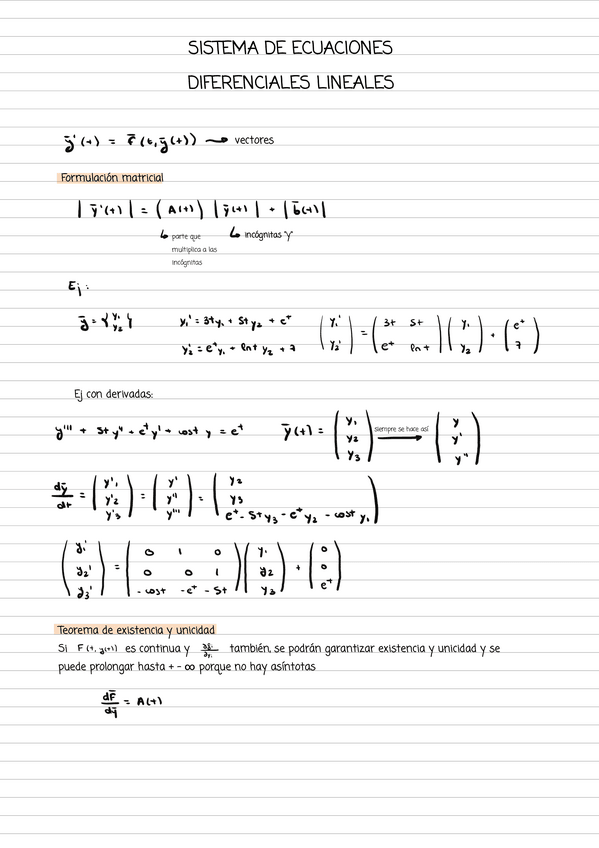 SISTEMA DE ECUACIONES
DIFERENCIALES LINEALES
ȳ'(t) = F̄(t, ȳ(t)) → vectores
Formulación matricial
| ȳ'(t) | = ( A(t) ) | ȳ(t) | + | b̄(t) |
↳ parte que multiplica a las incógnitas ↳ incógnitas "y"
Ej:
ȳ = { y₁ y₂ } y₁' = 3t y₁ + 5t y₂ + eᵗ ( y₁' ) = ( 3t 5t ) ( y₁ ) + ( eᵗ )
y₂' = eᵗ y₁ + ln t y₂ + 7 ( y₂' ) ( eᵗ ln t ) ( y₂ ) ( 7 )
Ej con derivadas:
y''' + 5t y'' + eᵗ y' + cost y = eᵗ ȳ(t) = ( y₁ y₂ y₃ ) siempre se hace así → ( y y' y'' )
dȳ/dt = ( y'₁ y'₂ y'₃ ) = ( y' y'' y''' ) = ( y₂ y₃ eᵗ - 5t y₃ - eᵗ y₂ - cost y₁ )
( y₁' ) ( 0 1 0 ) ( y₁ ) ( 0 )
( y₂' ) = ( 0 0 1 ) ( y₂ ) + ( 0 )
( y₃' ) ( -cost -eᵗ -5t ) ( y₃ ) ( eᵗ )
Teorema de existencia y unicidad
Si F(t, y(t)) es continua y también, se podrán garantizar existencia y unicidad y se
puede prolongar hasta + - ∞ porque no hay asíntotas
dF̄/dȳ = A(t)